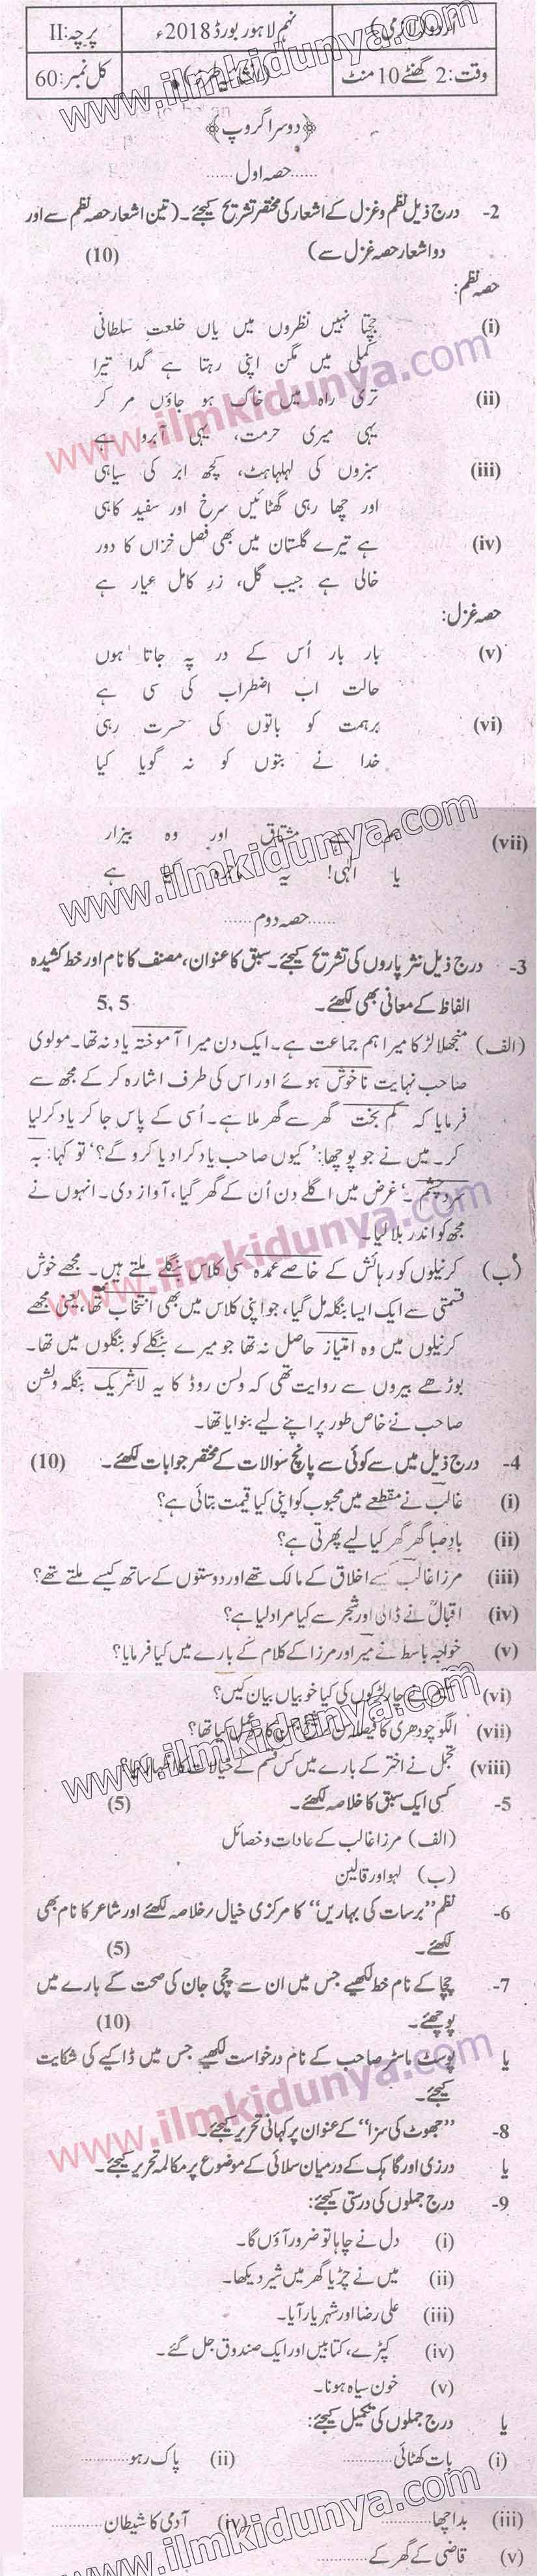 اردو (لازمی) نہم لاہور بورڈ 2018ء پرچہ: II
وقت: 2 گھنٹے 10 منٹ کل نمبر: 60
www.ilmkidunya.com
﴿دوسرا گروپ﴾
......حصہ اول......
2- درج ذیل نظم و غزل کے اشعار کی مختصر تشریح کیجئے۔ (تین اشعار حصہ نظم سے اور
دو اشعار حصہ غزل سے) (10)
حصہ نظم:
(i) جچتا نہیں نظروں میں یاں خلعت سلطانی
کملی میں مگن اپنی رہتا ہے گدا تیرا
www.ilmkidunya.com
(ii) تری راہ میں خاک ہو جاؤں مر کر
یہی میری حرمت، یہی آبرو ہے
(iii) سبزوں کی لہلہاہٹ، کچھ ابر کی سیاہی
اور چھا رہی گھٹائیں سرخ اور سفید کاہی
(iv) ہے تیرے گلستان میں بھی فصل خزاں کا دور
خالی ہے جیب گل، زر کامل عیار ہے
حصہ غزل:
(v) بار بار اُس کے در پہ جاتا ہوں
حالت اب اضطراب کی سی ہے
(vi) برہمت کو باتوں کی حسرت رہی
خدا نے بتوں کو نہ گویا کیا
(vii) ہم ہیں مشتاق اور وہ بیزار
یا الٰہی! یہ ماجرا کیا ہے
www.ilmkidunya.com
......حصہ دوم......
3- درج ذیل نثر پاروں کی تشریح کیجئے۔ سبق کا عنوان، مصنف کا نام اور خط کشیدہ
الفاظ کے معانی بھی لکھئے۔ 5,5
(الف) منجھلا لڑکا میرا ہم جماعت ہے۔ ایک دن میرا آموختہ یاد نہ تھا۔ مولوی
صاحب نہایت ناخوش ہوئے اور اس کی طرف اشارہ کر کے مجھ سے
فرمایا کہ کم بخت گھر سے گھر ملا ہے۔ اُسی کے پاس جا کر یاد کر لیا
کر۔ میں نے جو پوچھا: ’کیوں صاحب یاد کرا دیا کرو گے؟‘ تو کہا: بہ
سروچشم۔‘ غرض میں اگلے دن اُن کے گھر گیا، آواز دی۔ انہوں نے
مجھ کو اندر بلا لیا۔
www.ilmkidunya.com
(ب) کرنیلوں کو رہائش کے خاصے عمدہ سی کلاس بنگلے ملتے ہیں۔ مجھے خوش
قسمتی سے ایک ایسا بنگلہ مل گیا، جو اپنی کلاس میں بھی انتخاب تھا، یعنی مجھے
کرنیلوں میں وہ امتیاز حاصل نہ تھا جو میرے بنگلے کو بنگلوں میں تھا۔
بوڑھے بیروں سے روایت تھی کہ ولسن روڈ کا یہ لاشریک بنگلہ ولسن
صاحب نے خاص طور پر اپنے لیے بنوایا تھا۔
4- درج ذیل میں سے کوئی سے پانچ سوالات کے مختصر جوابات لکھئے۔ (10)
(i) غالب نے مقطعے میں محبوب کو اپنی کیا قیمت بتائی ہے؟
(ii) باد صبا گھر گھر کیا لیے پھرتی ہے؟
(iii) مرزا غالب کیسے اخلاق کے مالک تھے اور دوستوں کے ساتھ کیسے ملتے تھے؟
(iv) اقبالؒ نے ڈالی اور شجر سے کیا مراد لیا ہے؟
(v) خواجہ باسط نے میر اور مرزا کے کلام کے بارے میں کیا فرمایا؟
(vi) چار لڑکوں کی کیا خوبیاں بیان کیں؟
(vii) الگو چودھری کا فیصلہ سن کر کیا تھا؟
(viii) تجمل نے اختر کے بارے میں کس قسم کے خیالات کا اظہار کیا؟
www.ilmkidunya.com
5- کسی ایک سبق کا خلاصہ لکھئے۔ (5)
(الف) مرزا غالب کے عادات و خصائل
(ب) لہو اور قالین
6- نظم ’’برسات کی بہاریں‘‘ کا مرکزی خیال/خلاصہ لکھئے اور شاعر کا نام بھی
لکھئے۔ (5)
7- چچا کے نام خط لکھیے جس میں ان سے چچی جان کی صحت کے بارے میں
پوچھئے۔ (10)
یا پوسٹ ماسٹر صاحب کے نام درخواست لکھیے جس میں ڈاکیے کی شکایت
کیجئے۔
www.ilmkidunya.com
8- ’’جھوٹ کی سزا‘‘ کے عنوان پر کہانی تحریر کیجئے۔
یا درزی اور گاہک کے درمیان سلائی کے موضوع پر مکالمہ تحریر کیجئے۔
9- درج جملوں کی درستی کیجئے:
(i) دل نے چاہا تو ضرور آؤں گا۔
(ii) میں نے چڑیا گھر میں شیر دیکھا۔
(iii) علی رضا اور شہریار آیا۔
(iv) کپڑے، کتابیں اور ایک صندوق جل گئے۔
(v) خون سیاہ ہونا۔
یا درج جملوں کی تکمیل کیجئے:
(i) بات کھٹائی............ (ii) پاک رہو............
(iii) بد اچھا............ (iv) آدمی کا شیطان............
(v) قاضی کے گھر کے............
www.ilmkidunya.com